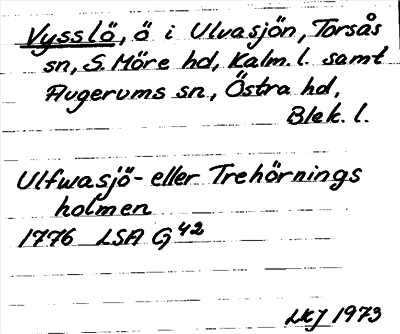 Vysslö, ö i Ulvasjön, Torsås
sn, S. Möre hd, Kalm. l. samt
Augerums sn, Östra hd,
Blek. l.
Ulfwasjö- eller Trehörnings
holmen
1776 LSA G 42
LKJ 1973